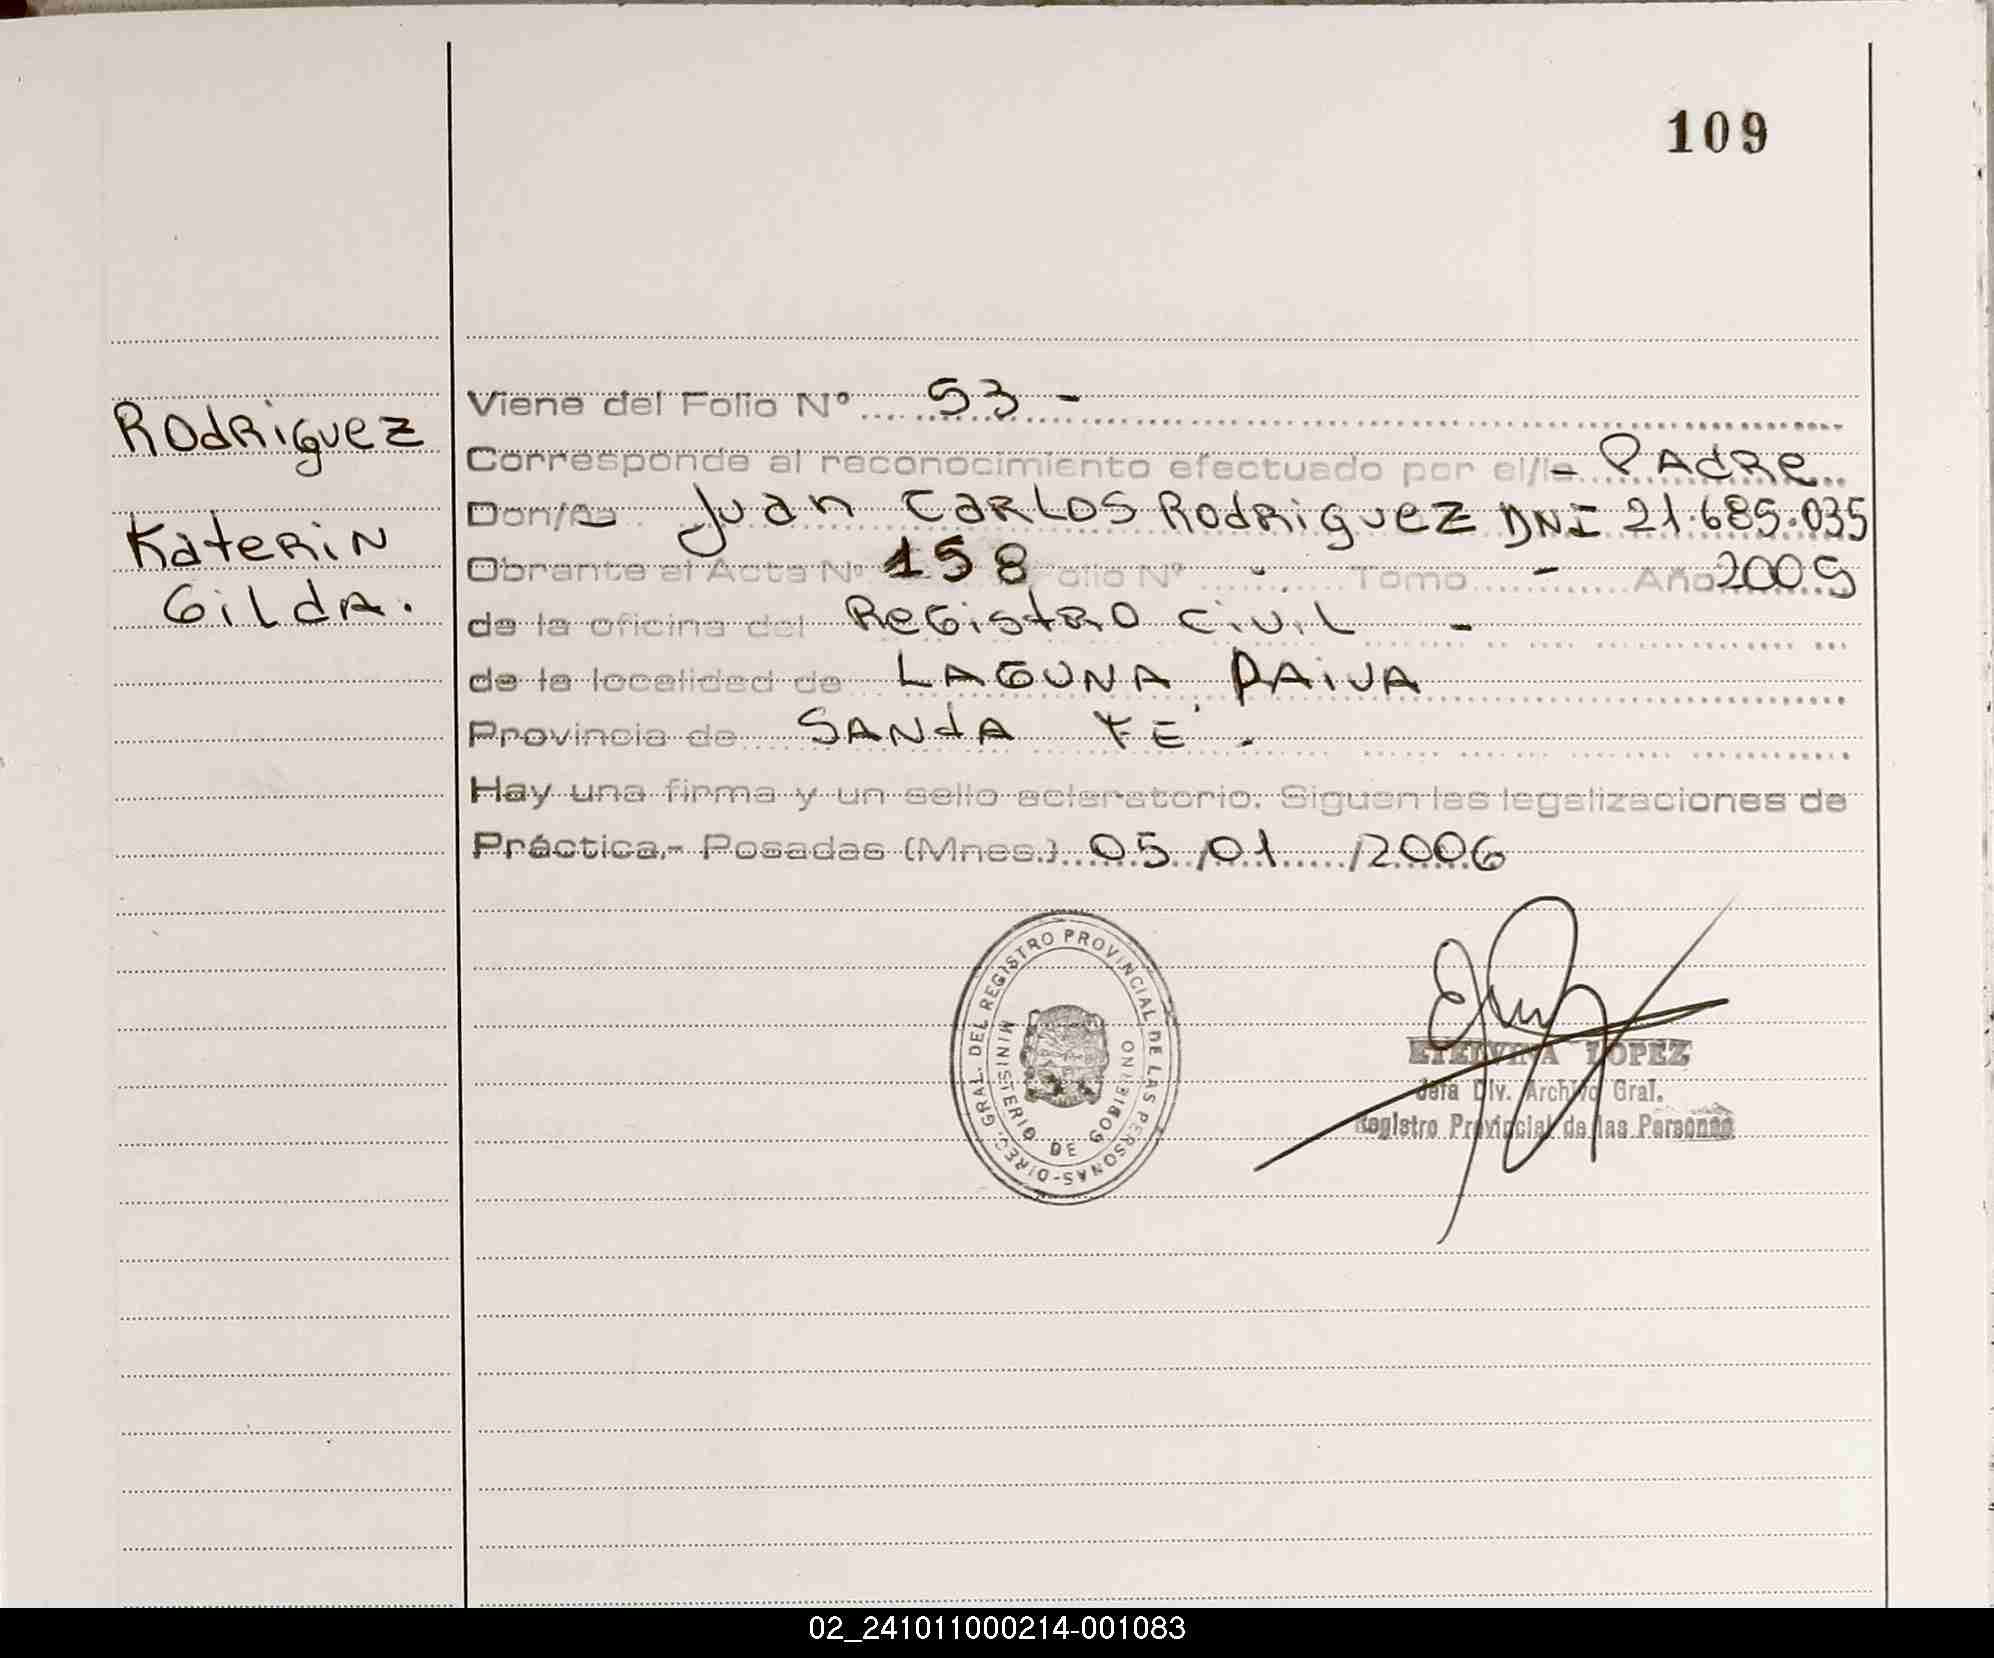 109
Rodriguez
Katerin
Gilda.
Viene del Folio N° 53 -
Corresponde al reconocimiento efectuado por el/la - Padre
Don/ña Juan Carlos Rodriguez DNI 21.685.035
Obrante al Acta N° 158 Folio N° - Tomo - Año 2005
de la oficina del Registro Civil -
de la localidad de LAGUNA PAIVA
Provincia de SANtA FE -
Hay una firma y un sello aclaratorio. Siguen las legalizaciones de
Práctica.- Posadas (Mnes.) 05/01/2006
DIREC. GRAL. DEL REGISTRO PROVINCIAL DE LAS PERSONAS-
MINISTERIO DE GOBIERNO
ETELVINA LOPEZ
Jefa Div. Archivo Gral.
Registro Provincial de las Personas
02_241011000214-001083